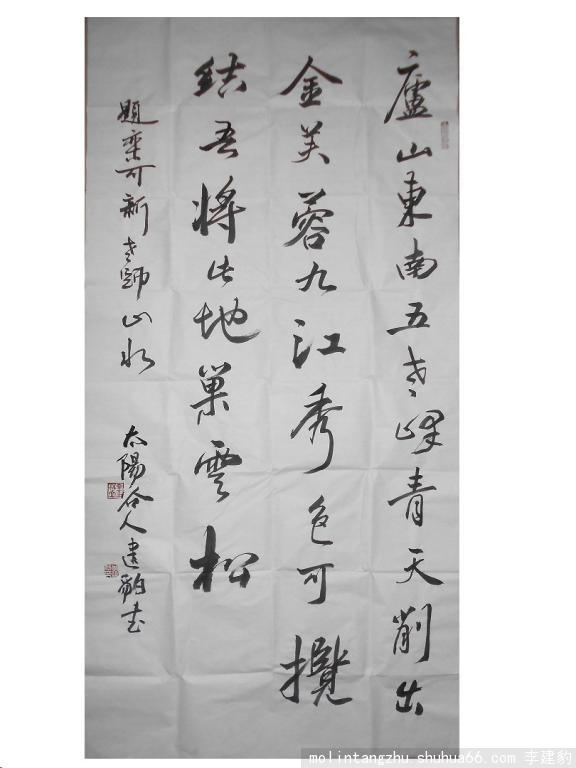 廬山東南五老峰青天削出
金芙蓉九江秀色可攬
結吾將此地巢雲松
題欒可新老師山水
太陽谷人建豹书
molintangzhu.shuhua66.com 李建豹